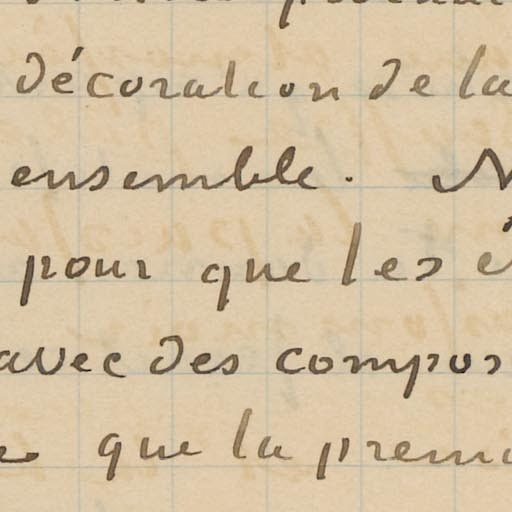 décoration de la
ensemble. N
pour que les é
avec des compos
que la premi